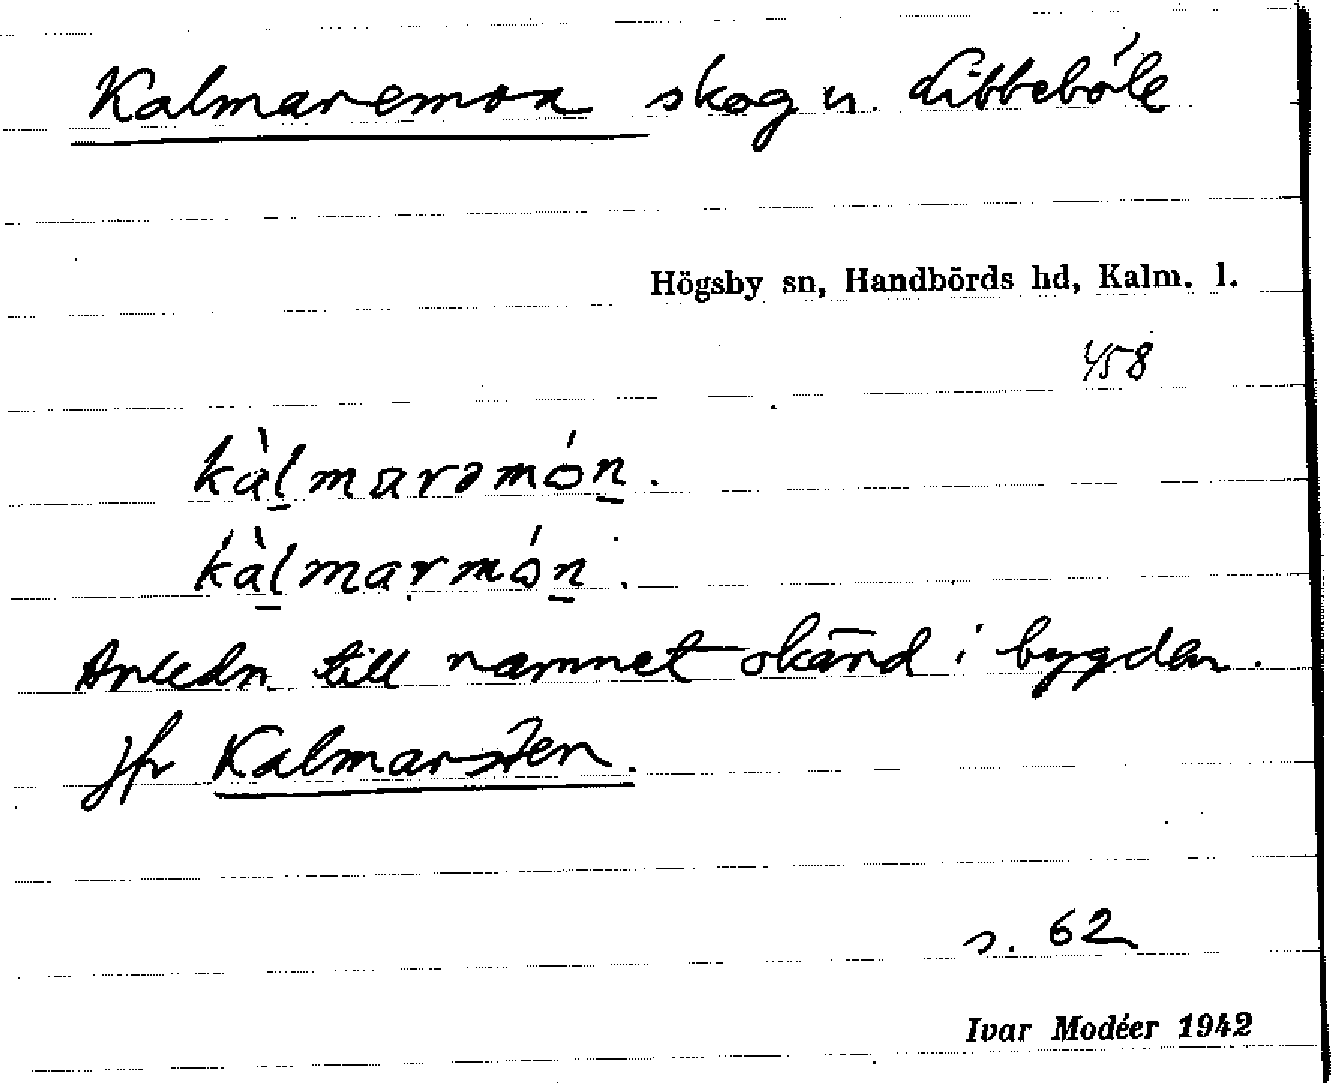 Kalmaremon skog u. Libbeböle
Högsby sn, Handbörds hd, Kalm. l.
458
kàl̲marəmón̲.
kàl̲marmón̲.
Anledn till namnet okänd i bygden.
jfr Kalmarsten.
s. 62
Ivar Modéer 1942